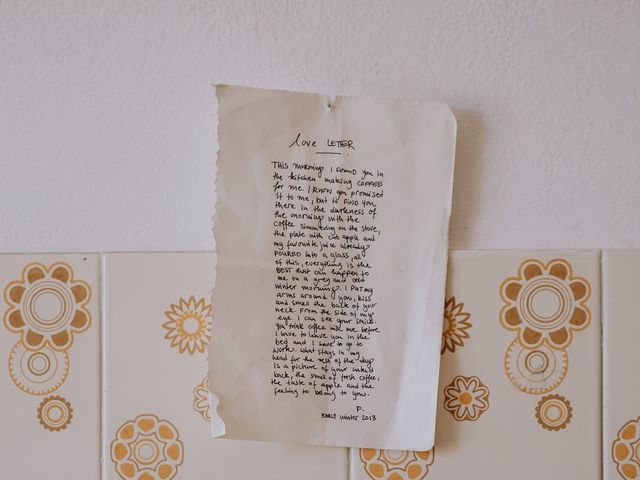 love LETTER
THIS MORNING I FOUND you in
the kitchen making COFFEE
for me. I KNOW you promised
it to me, but to FIND you
there in the darkness of
the morning with the
coffee simmering on the stove,
the plate with cut apple and
my favourite juice already
POURED into a glass, all
of this, everything is the
BEST that can happen to
me on a grey and cold
winter morning. I put my
arms around you, kiss
and smell the back of your
neck. From the side of my
eye I can see your smile.
You drink coffee with me before
I have to leave you in the
bed and I have to go to
work. What stays in my
head for the rest of the day
is a picture of your naked
back, the smell of fresh coffee,
the taste of apple and the
feeling to belong to you.
P.
EARLY winter 2013